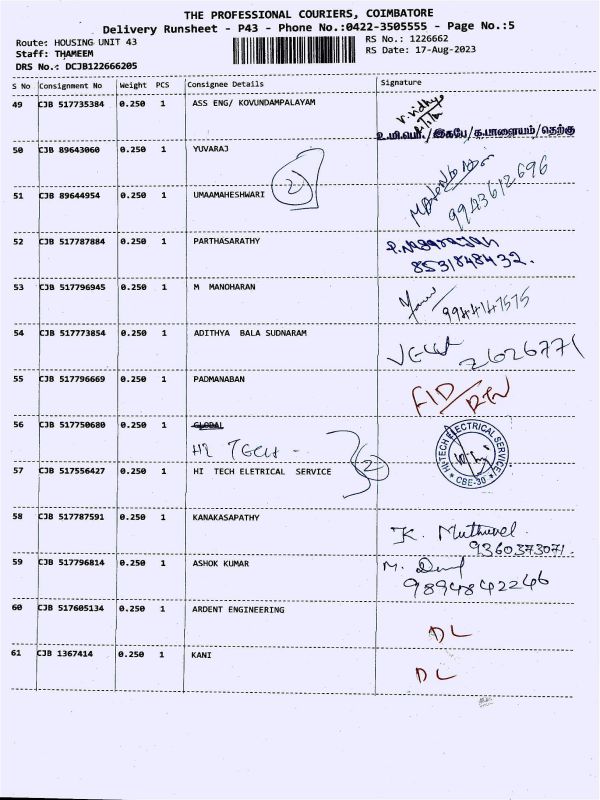 THE PROFESSIONAL COURIERS, COIMBATORE
Delivery Runsheet - P43 - Phone No.:0422-3505555 - Page No.:5
Route: HOUSING UNIT 43
Staff: THAMEEM
DRS No.: DCJB122666205
RS No.: 1226662
RS Date: 17-Aug-2023
S No Consignment No Weight PCS Consignee Details Signature
49 CJB 517735384 0.250 1 ASS ENG/ KOVUNDAMPALAYAM
உ.மி.பொ./இகபே/க.பாளையம்/தெற்கு
50 CJB 89643060 0.250 1 YUVARAJ
2
51 CJB 89644954 0.250 1 UMAAMAHESHWARI 9943612696
52 CJB 517787884 0.250 1 PARTHASARATHY P.Nagarajan
8531848432.
53 CJB 517796945 0.250 1 M MANOHARAN 9944147575
54 CJB 517773854 0.250 1 ADITHYA BALA SUDNARAM 2626771
55 CJB 517796669 0.250 1 PADMANABAN
56 CJB 517750680 0.250 1 GLOBAL
HI TECH -
HI-TECH ELECTRICAL SERVICE
CBE-30
57 CJB 517556427 0.250 1 HI TECH ELETRICAL SERVICE 2
58 CJB 517787591 0.250 1 KANAKASAPATHY K. Muthuvel
9360373071.
59 CJB 517796814 0.250 1 ASHOK KUMAR
9894842246
60 CJB 517605134 0.250 1 ARDENT ENGINEERING DL
61 CJB 1367414 0.250 1 KANI DL